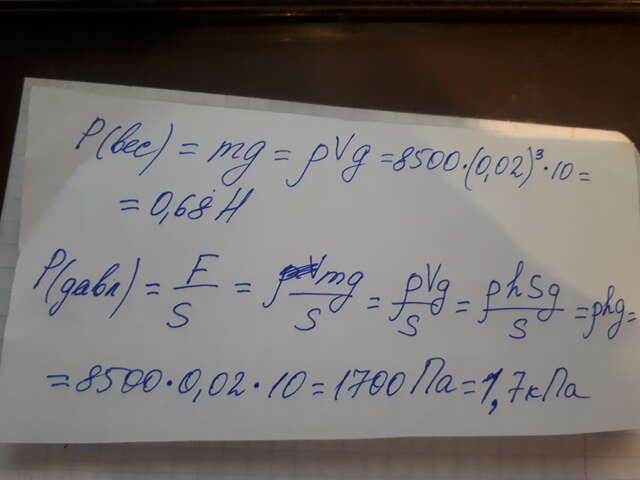 P(вес) = mg = ρVg = 8500·(0,02)³·10 =
= 0,68 Н
P(давл) = F/S = mg/S = ρVg/S = ρhSg/S = ρhg =
= 8500·0,02·10 = 1700 Па = 1,7 кПа